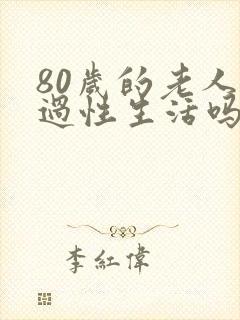 80歲的老人
過性生活嗎
李紅偉